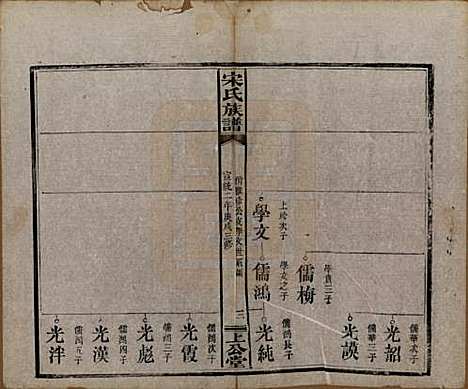 儒華次子
光韶
儒華三子
光謨
學貢三子
儒梅
上珍次子
學文
學文之子
儒鴻
儒鴻長子
光純
宋氏族譜
宣統二年庚戌三修
三
上公堂
儒鴻次子
光霞
儒鴻三子
光彪
儒鴻四子
光漢
儒鴻五子
光泮